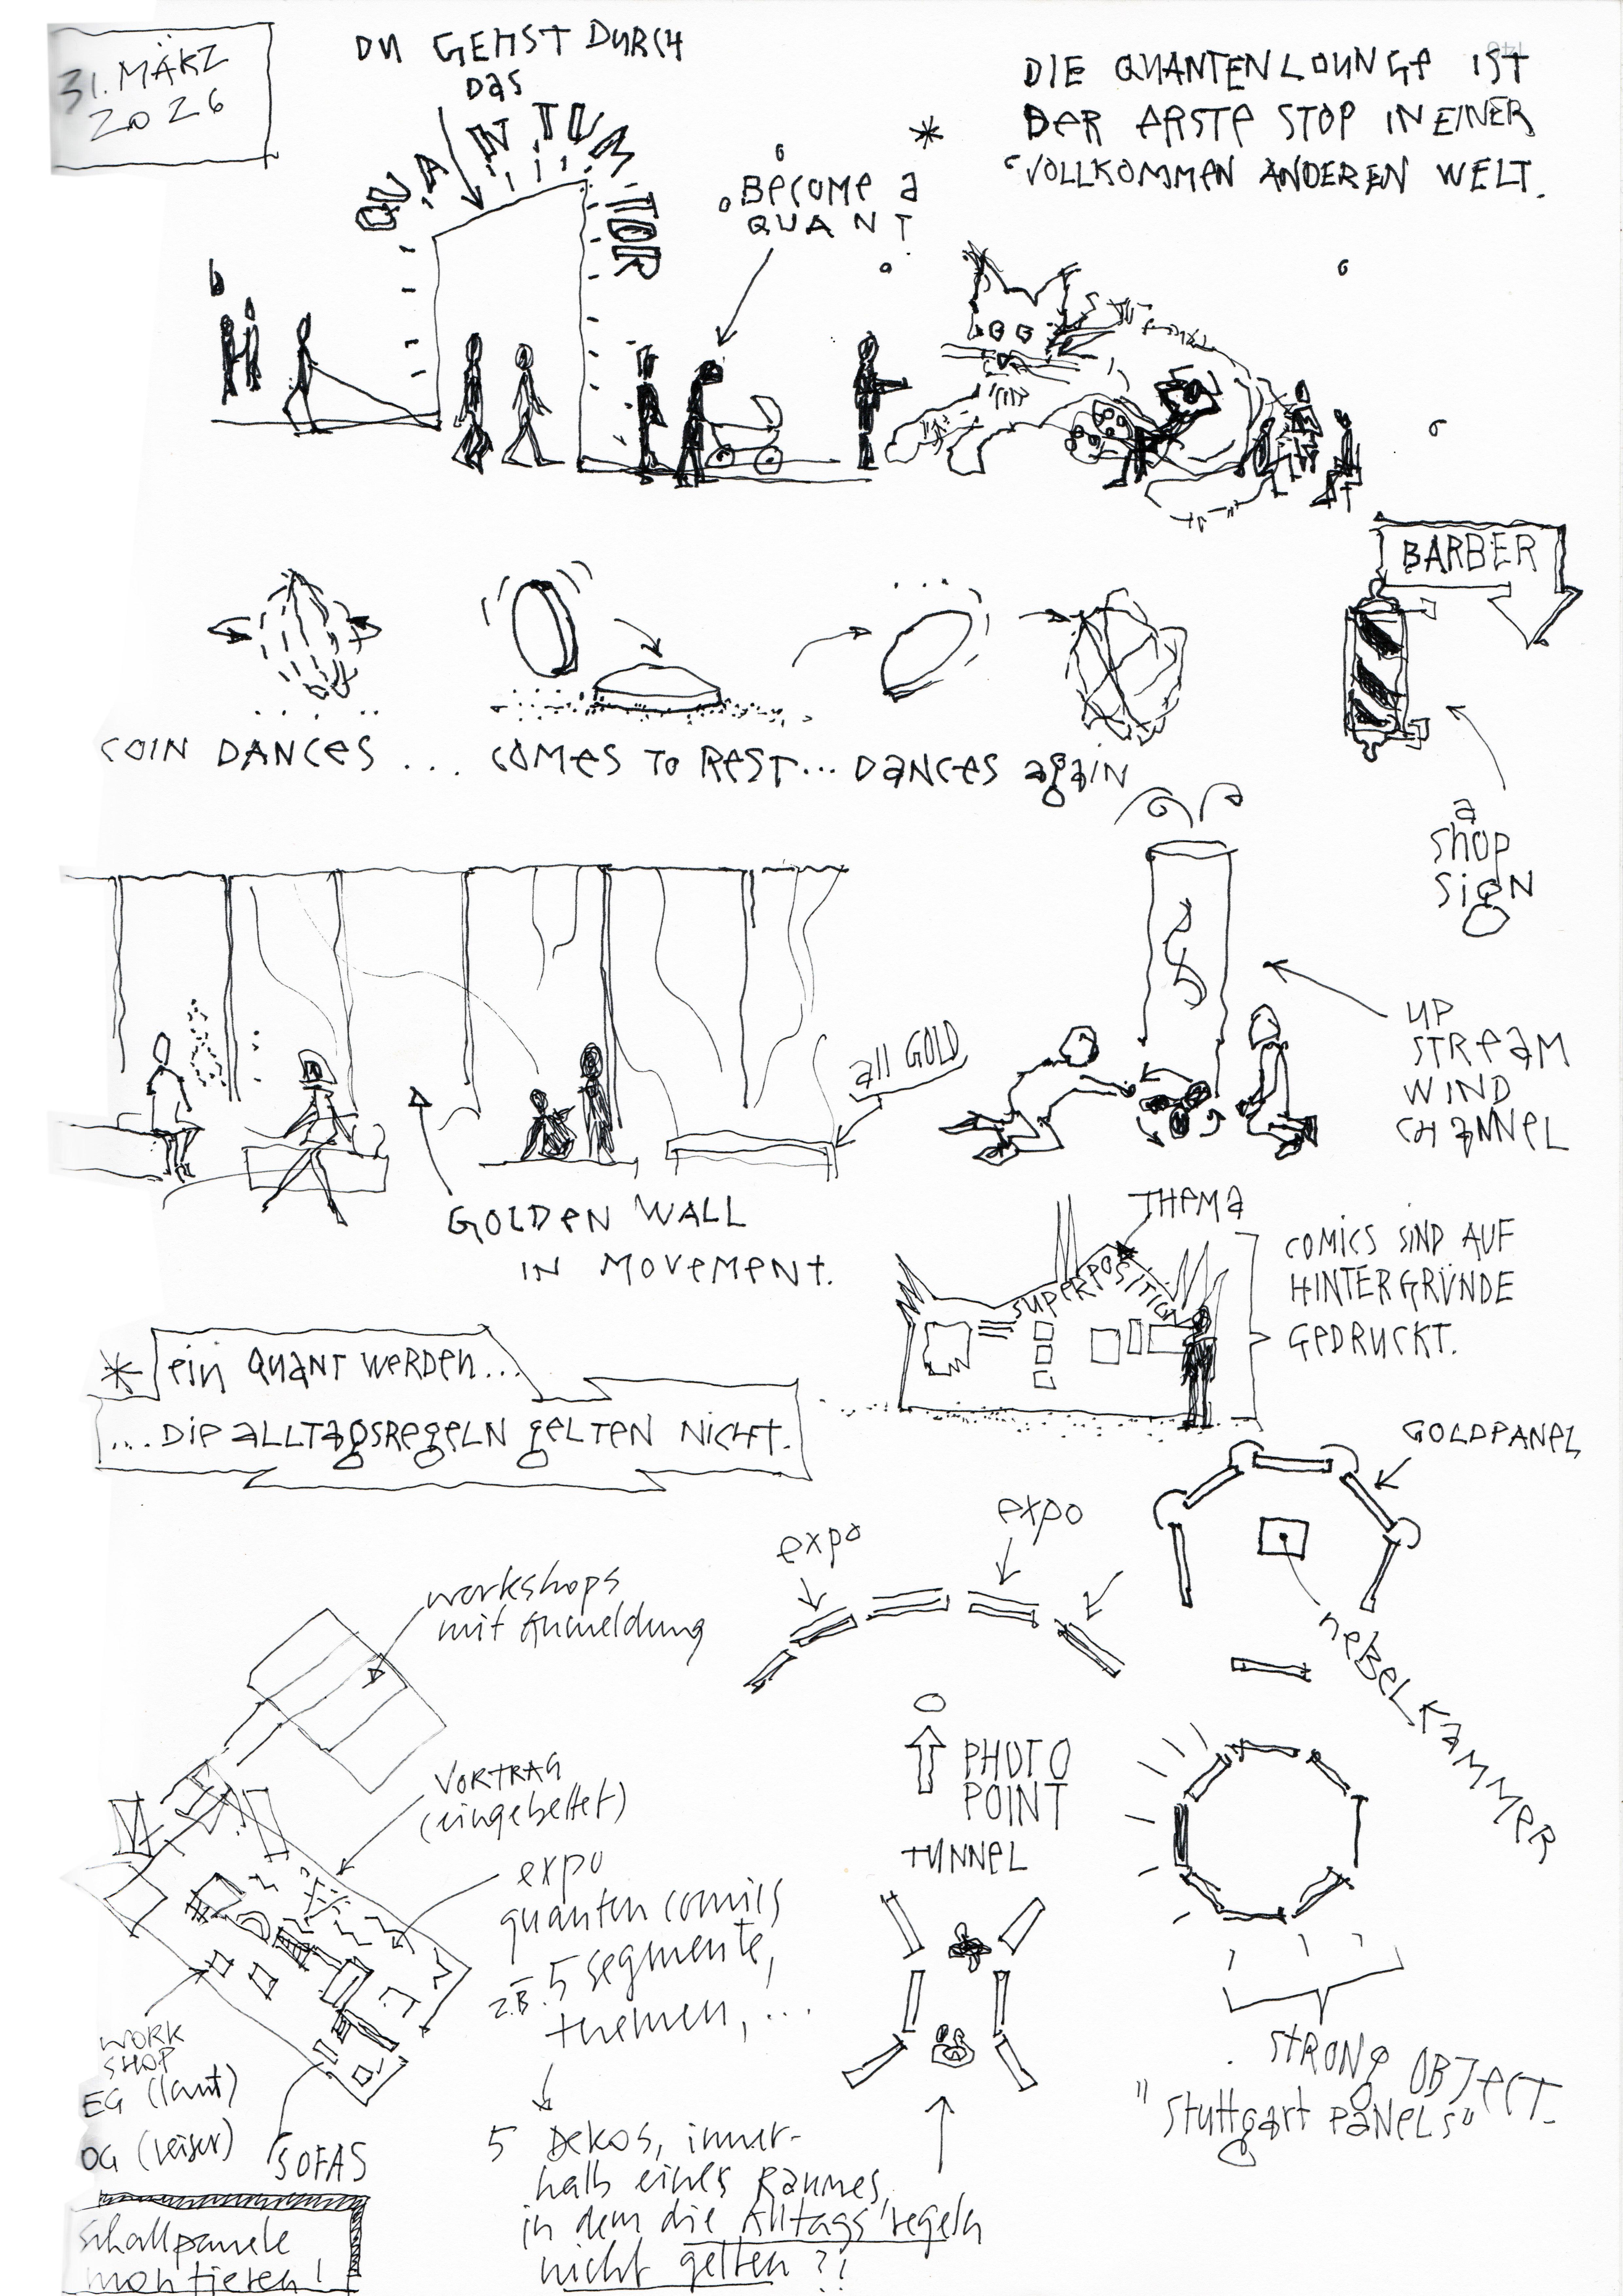 31. MÄRZ
2026
DU GEHST DURCH
DAS
QUANTUM TOR
*
BECOME A
QUANT
DIE QUANTENLOUNGE IST
DER ERSTE STOP IN EINER
VOLLKOMMEN ANDEREN WELT.
BARBER
COIN DANCES ... COMES TO REST... DANCES again
a
shop
sign
all GOLD
UP
STREAM
WIND
CHANNEL
GOLDEN WALL
IN MOVEMENT.
THEMA
SUPERPOSITION
COMICS SIND AUF
HINTERGRÜNDE
GEDRUCKT.
* ein QUANT WERDEN...
... DIE ALLTAGSREGELN GELTEN NICHT.
GOLDPANEL
expo
expo
NEBELKAMMER
workshops
mit Anmeldung
VORTRAG
(eingebettet)
PHOTO
POINT
TUNNEL
expo
quanten comics
z.B. 5 segmente,
themen, ...
WORK
SHOP
EG (laut)
OG (leiser)
SOFAS
Schallpanele
montieren!
5 Dekos, inner-
halb eines Raumes,
in dem die Alltags'regeln
nicht gelten ?!
STRONG OBJECT.
"Stuttgart PANELS"